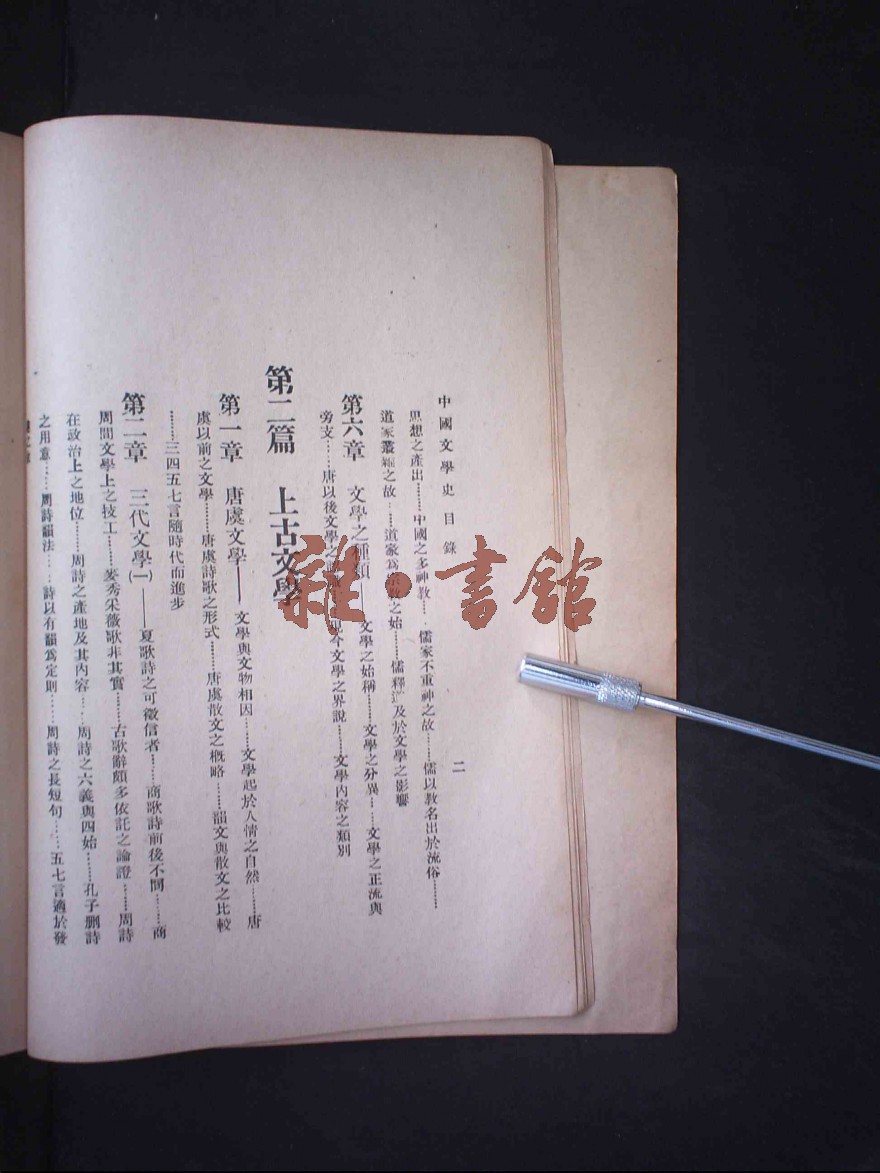 中國文學史目錄
二
思想之產出……中國之多神教……儒家不重神之故……儒以教名出於流俗……
道家叢雜之故……道家爲宗教之始……儒釋道及於文學之影響
第六章 文學之種類——文學之始稱……文學之分異……文學之正流與
旁支……唐以後文學之……今文學之界說……文學內容之類別
第二篇 上古文學
第一章 唐虞文學——文學與文物相因……文學起於人情之自然……唐
虞以前之文學……唐虞詩歌之形式……唐虞散文之槪略……韻文與散文之比較
……三四五七言隨時代而進步
第二章 三代文學(一)——夏歌詩之可徵信者……商歌詩前後不同……商
周間文學上之技工……麥秀采薇歌非其實……古歌辭頗多依託之論證……周詩
在政治上之地位……周詩之產地及其內容……周詩之六義與四始……孔子删詩
之用意……周詩韻法……詩以有韻爲定則……周詩之長短句……五七言適於發
雜·書館